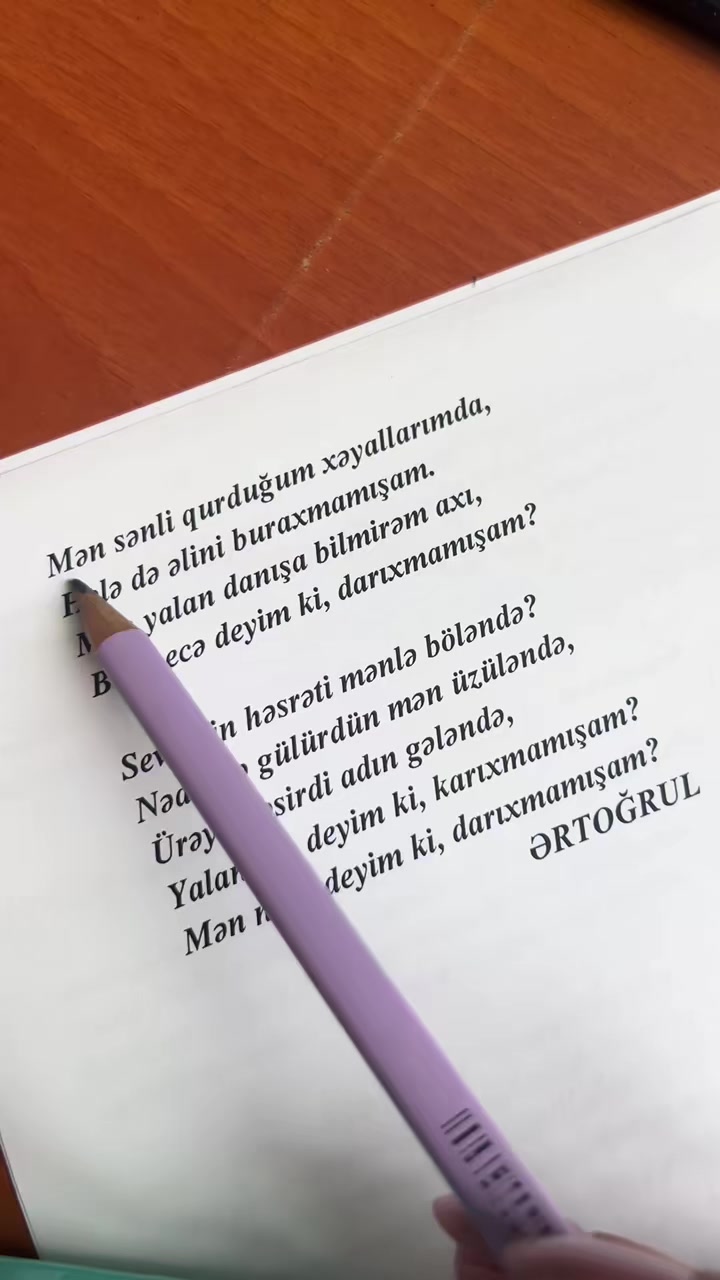 Mən sənli qurduğum xəyallarımda,
də əlini buraxmamışam.
yalan danışa bilmirəm axı,
deyim ki, darıxmamışam?
həsrəti mənlə böləndə?
gülürdün mən üzüləndə,
adın gələndə,
deyim ki, karıxmamışam?
Mən deyim ki, darıxmamışam?
ƏRTOĞRUL